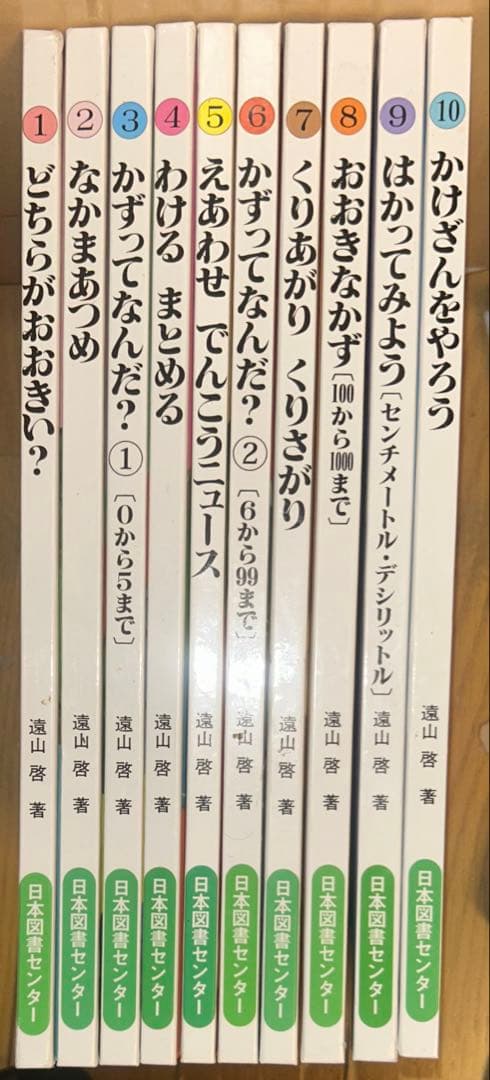 1 どちらがおおきい? 遠山啓 著 日本図書センター
2 なかまあつめ 遠山啓 著 日本図書センター
3 かずってなんだ?① 〔0から5まで〕 遠山啓 著 日本図書センター
4 わける まとめる 遠山啓 著 日本図書センター
5 えあわせ でんこうニュース 遠山啓 著 日本図書センター
6 かずってなんだ?② 〔6から99まで〕 遠山啓 著 日本図書センター
7 くりあがり くりさがり 遠山啓 著 日本図書センター
8 おおきなかず〔100から1000まで〕 遠山啓 著 日本図書センター
9 はかってみよう〔センチメートル・デシリットル〕 遠山啓 著 日本図書センター
10 かけざんをやろう 遠山啓 著 日本図書センター